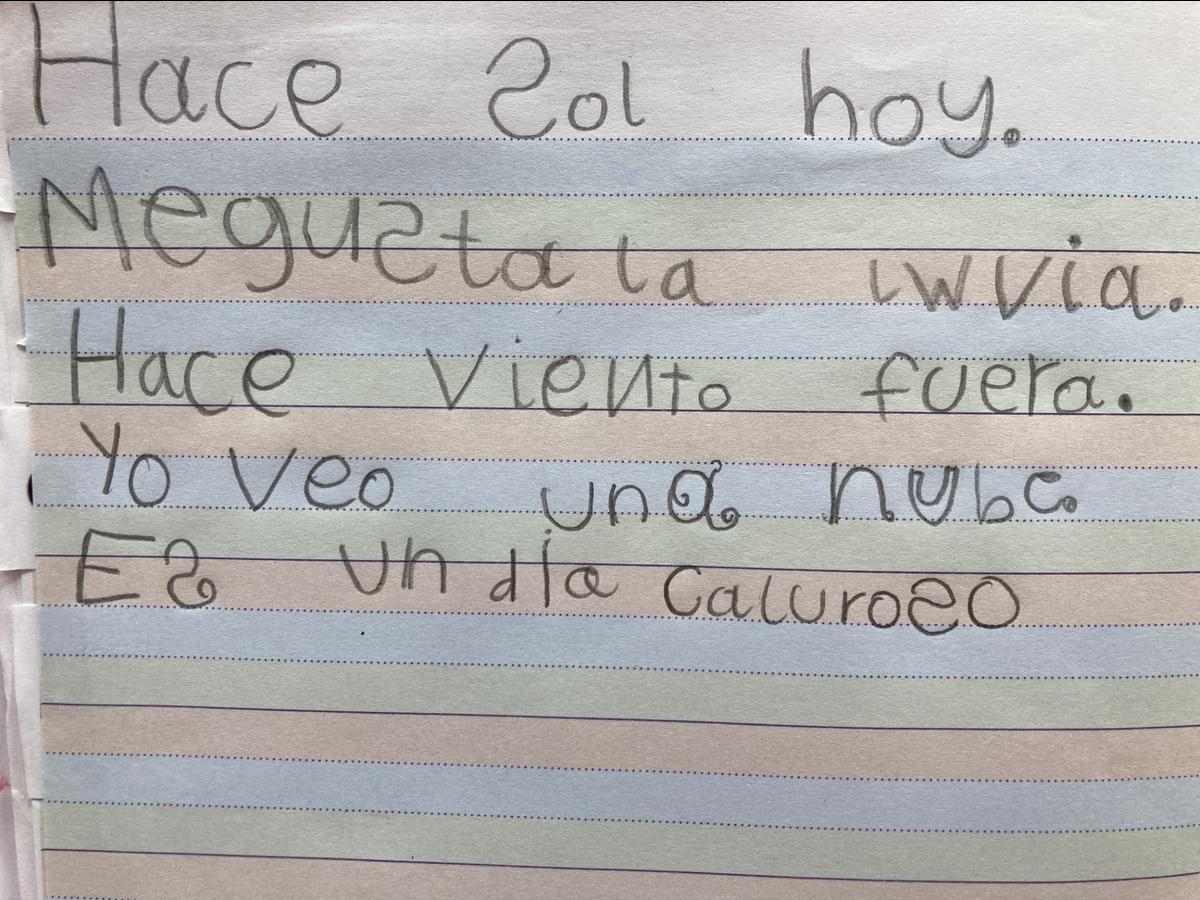 Hace Sol hoy.
Megusta la lwvia.
Hace viento fuera.
Yo veo una nube.
Es un día caluroso